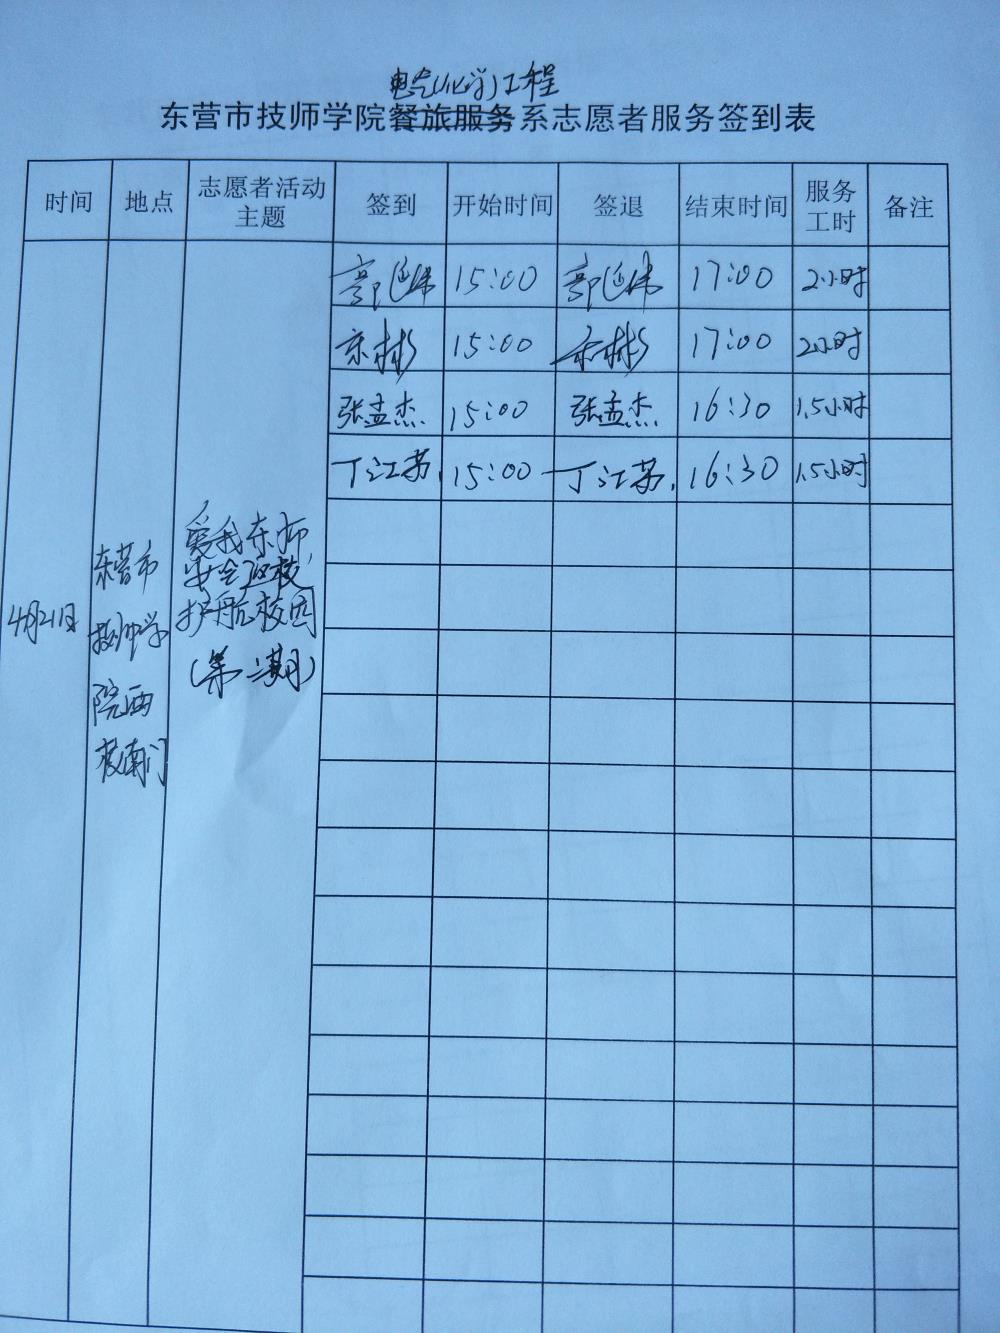 电气(化学)工程
东营市技师学院餐旅服务系志愿者服务签到表
时间 地点 志愿者活动主题 签到 开始时间 签退 结束时间 服务工时 备注
15:00 17:00 2小时
宋彬 15:00 宋彬 17:00 2小时
张孟杰 15:00 张孟杰. 16:30 1.5小时
丁江苏. 15:00 丁江苏. 16:30 1.5小时
4月21日
东营市
技师学
院西
校南门
爱我东师,
安全巡校,
护航校园
(第二期)